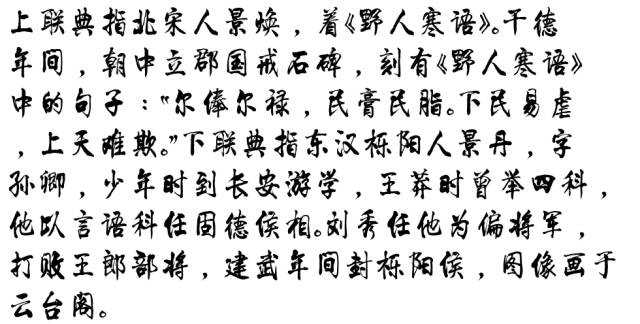 上联典指北宋人景焕，着《野人寒语》。干德
年间，朝中立郡国戒石碑，刻有《野人寒语》
中的句子：“尔俸尔禄，民膏民脂。下民易虐
，上天难欺。”下联典指东汉栎阳人景丹，字
孙卿，少年时到长安游学，王莽时曾举四科，
他以言语科任固德侯相。刘秀任他为偏将军，
打败王郎部将，建武年间封栎阳侯，图像画于
云台阁。